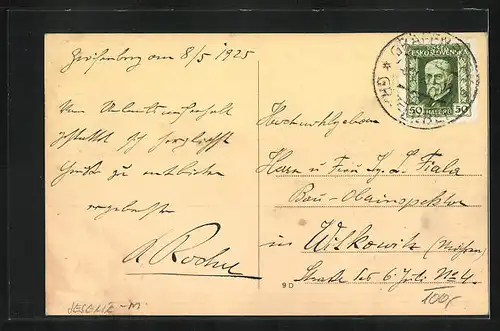 Gräfenberg am 8/5 1925
Vom Urlaubsaufenthalt
gestattet sich herzlichste
Grüße zu entbieten
ergebenster
A. Roche
ČESKOSLOVENSKO
50 HALÉŘŮ 50
GRÄFENBERG
Hochwohlgeboren
Herrn u Frau Ig. L. Fiala
Bau-Oberinspektor
in Witkowitz (Mähren)
Straße des 6 Juli No 4.
9 D
JESENÍK - M.
100,-